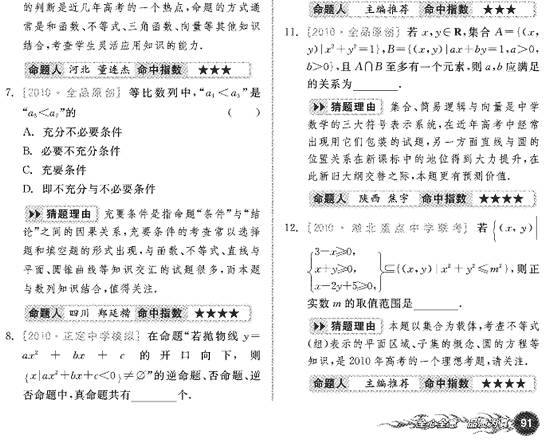 的判断是近几年高考的一个热点,命题的方式通
常是和函数、不等式、三角函数、向量等其他知识
结合,考查学生灵活应用知识的能力.
命题人 河北 董连杰 命中指数 ★★★
7. [2010·全品原创] 等比数列中,“a₁<a₃”是
“a₅<a₇”的 ( )
A. 充分不必要条件
B. 必要不充分条件
C. 充要条件
D. 即不充分与不必要条件
猜题理由 充要条件是指命题“条件”与“结
论”之间的因果关系,充要条件的考查常以选择
题和填空题的形式出现,与函数、不等式、直线与
平面、圆锥曲线等知识交汇的试题很多,而本题
与数列知识结合,值得关注.
命题人 四川 郑廷楷 命中指数 ★★★★
8. [2010·正定中学模拟] 在命题“若抛物线 y=
ax² + bx + c 的开口向下,则
{x|ax²+bx+c<0}≠∅”的逆命题、否命题、逆
否命题中,真命题共有________个.
命题人 主编推荐 命中指数 ★★★
11. [2010·全品原创] 若 x,y∈R,集合 A={(x,
y)|x²+y²=1},B={(x,y)|ax+by=1,a>0,
b>0},且 A∩B 至多有一个元素,则 a,b 应满足
的关系为________.
猜题理由 集合、简易逻辑与向量是中学
数学的三大符号表示系统,在近年高考中经常
出现用它们包装的试题,另一方面直线与圆的
位置关系在新课标中的地位得到大力提升,在
此新旧大纲交替之际,本题更有预测价值.
命题人 陕西 焦宇 命中指数 ★★★★
12. [2010·湖北重点中学联考] 若{(x,y)|
3-x≥0,
x+y≥0, ⊆{(x,y)|x²+y²≤m²},则正
x-2y+5≥0,
实数 m 的取值范围是________.
猜题理由 本题以集合为载体,考查不等式
(组)表示的平面区域、子集的概念、圆的方程等
知识,是 2010 年高考的一个理想考题,请关注.
命题人 主编推荐 命中指数 ★★★★
91